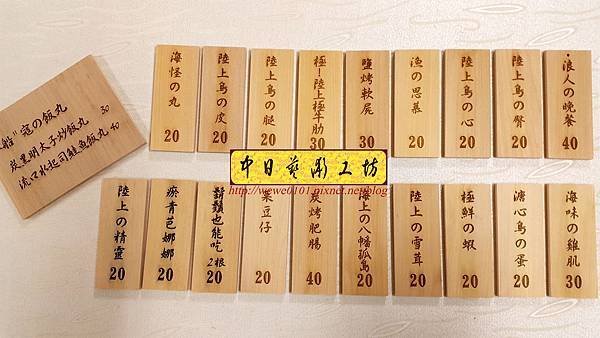 船〞寇の飯丸 30
炭里明太子炒飯丸
流ㄗ杺起司鮭魚飯丸 40
海怪の丸 20
陸上鳥の皮 20
陸上鳥の腿 20
極!陸上極牛肋 30
鹽烤軟屍 30
漁の思慕 20
陸上鳥の心 20
陸上鳥の臀 20
浪人の晚餐 40
中日藝彫工坊
http://wewe0101.pixnet.net/blog
陸上の精靈 20
瘀青芭娜娜 20
鬍鬚也能吃 2根 20
栗豆仔 20
炭烤肥腸 40
海上の八幡孤島 20
陸上の雪茸 20
極鮮の蝦 20
溏心鳥の蛋 20
海味の雞肌 30